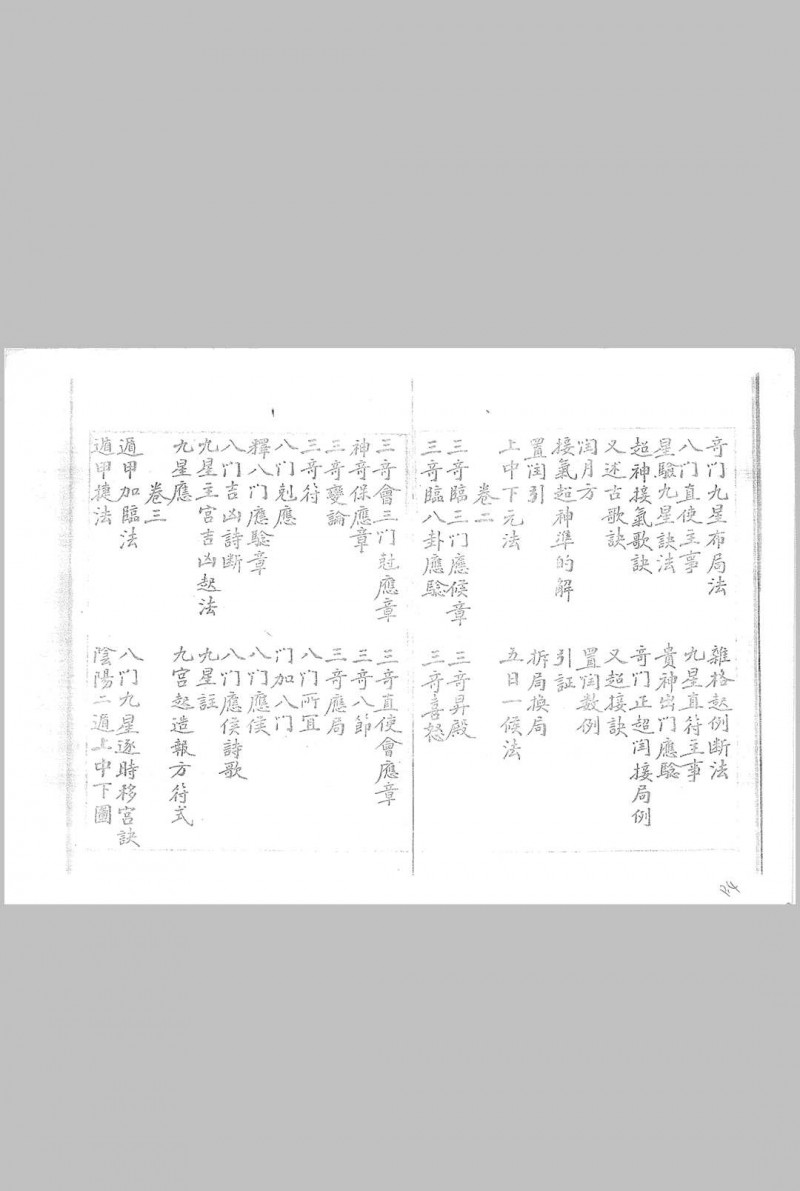 奇门九星布局法　雜格起例断法
八门直使主事　九星直符主事
星騐九星訣法　貴神出门應騐
超神接氣歌訣　奇门正超闰接局例
又述古歌訣　又超接訣
闰月方　置闰数例
接氣超神準的解　引証
置闰引　拆局換局
上中下元法　五日一候法
卷二
三奇臨三门應候章　三奇昇殿
三奇臨八卦應騐　三奇喜怒
三奇會三门尅應章　三奇直使會應章
神奇保應章　三奇八節
三奇變論　三奇應局
三奇符　八门所宜
八门尅應　门加八门
釋八门應騐章　八门應候
八门吉凶詩断　八门應侯詩歌
九星主宮吉凶起法　九星註
九星應　九宮起造報方符式
卷三
遁甲加臨法　八门九星逐時移宮訣
遁甲捷法　陰陽二遁上中下圖
P.4